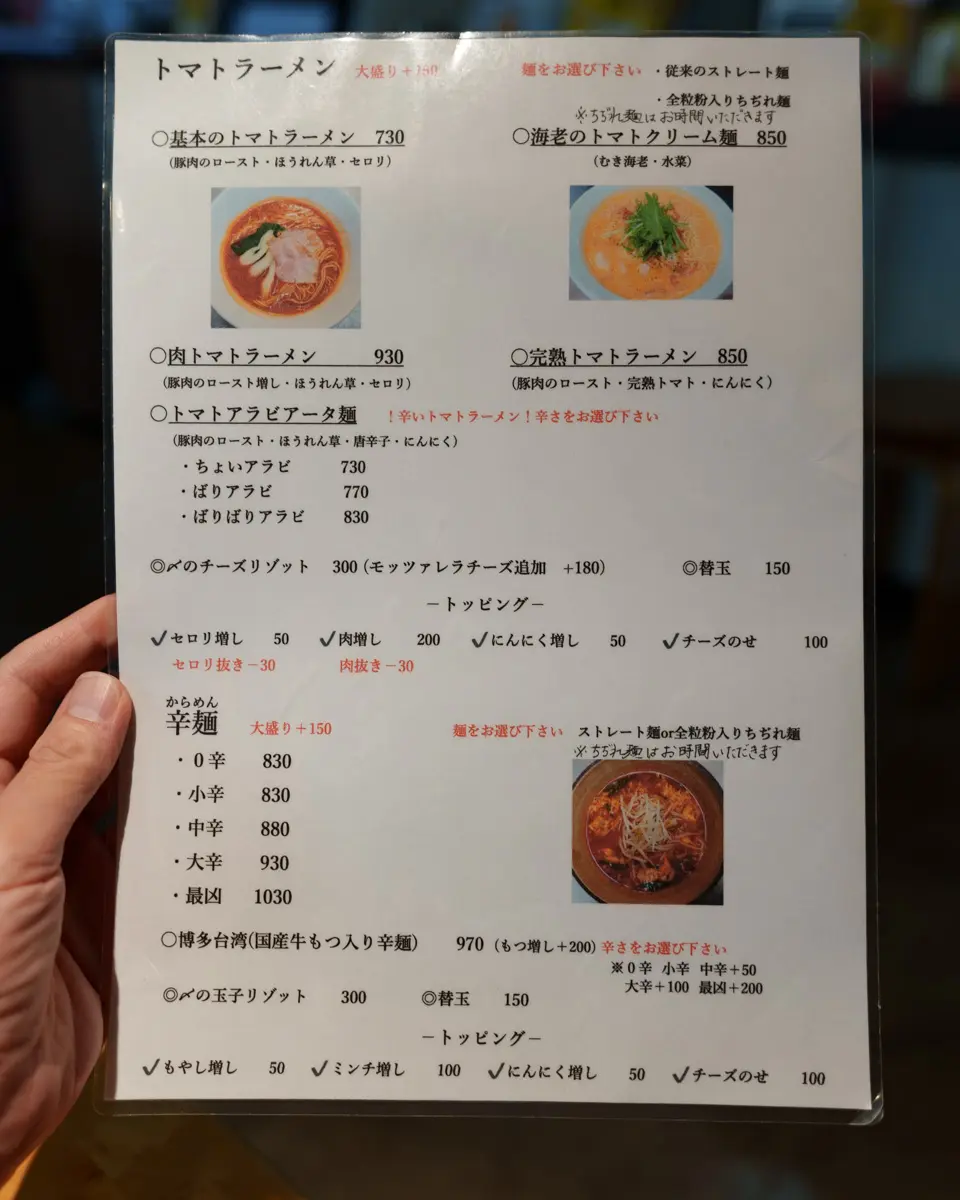 トマトラーメン 大盛り+150 麺をお選び下さい ・従来のストレート麺
・全粒粉入りちぢれ麺
※ちぢれ麺はお時間いただきます
〇基本のトマトラーメン 730 〇海老のトマトクリーム麺 850
(豚肉のロースト・ほうれん草・セロリ) (むき海老・水菜)
〇肉トマトラーメン 930 〇完熟トマトラーメン 850
(豚肉のロースト増し・ほうれん草・セロリ) (豚肉のロースト・完熟トマト・にんにく)
〇トマトアラビアータ麺 !辛いトマトラーメン!辛さをお選び下さい
(豚肉のロースト・ほうれん草・唐辛子・にんにく)
・ちょいアラビ 730
・ばりアラビ 770
・ばりばりアラビ 830
◎〆のチーズリゾット 300(モッツァレラチーズ追加 +180) ◎替玉 150
－トッピング－
✓セロリ増し 50 ✓肉増し 200 ✓にんにく増し 50 ✓チーズのせ 100
セロリ抜き－30 肉抜き－30
からめん
辛麺 大盛り+150 麺をお選び下さい ストレート麺or全粒粉入りちぢれ麺
※ちぢれ麺はお時間いただきます
・0辛 830
・小辛 830
・中辛 880
・大辛 930
・最凶 1030
〇博多台湾(国産牛もつ入り辛麺) 970 (もつ増し+200) 辛さをお選び下さい
※0辛 小辛 中辛+50
大辛+100 最凶+200
◎〆の玉子リゾット 300 ◎替玉 150
－トッピング－
✓もやし増し 50 ✓ミンチ増し 100 ✓にんにく増し 50 ✓チーズのせ 100